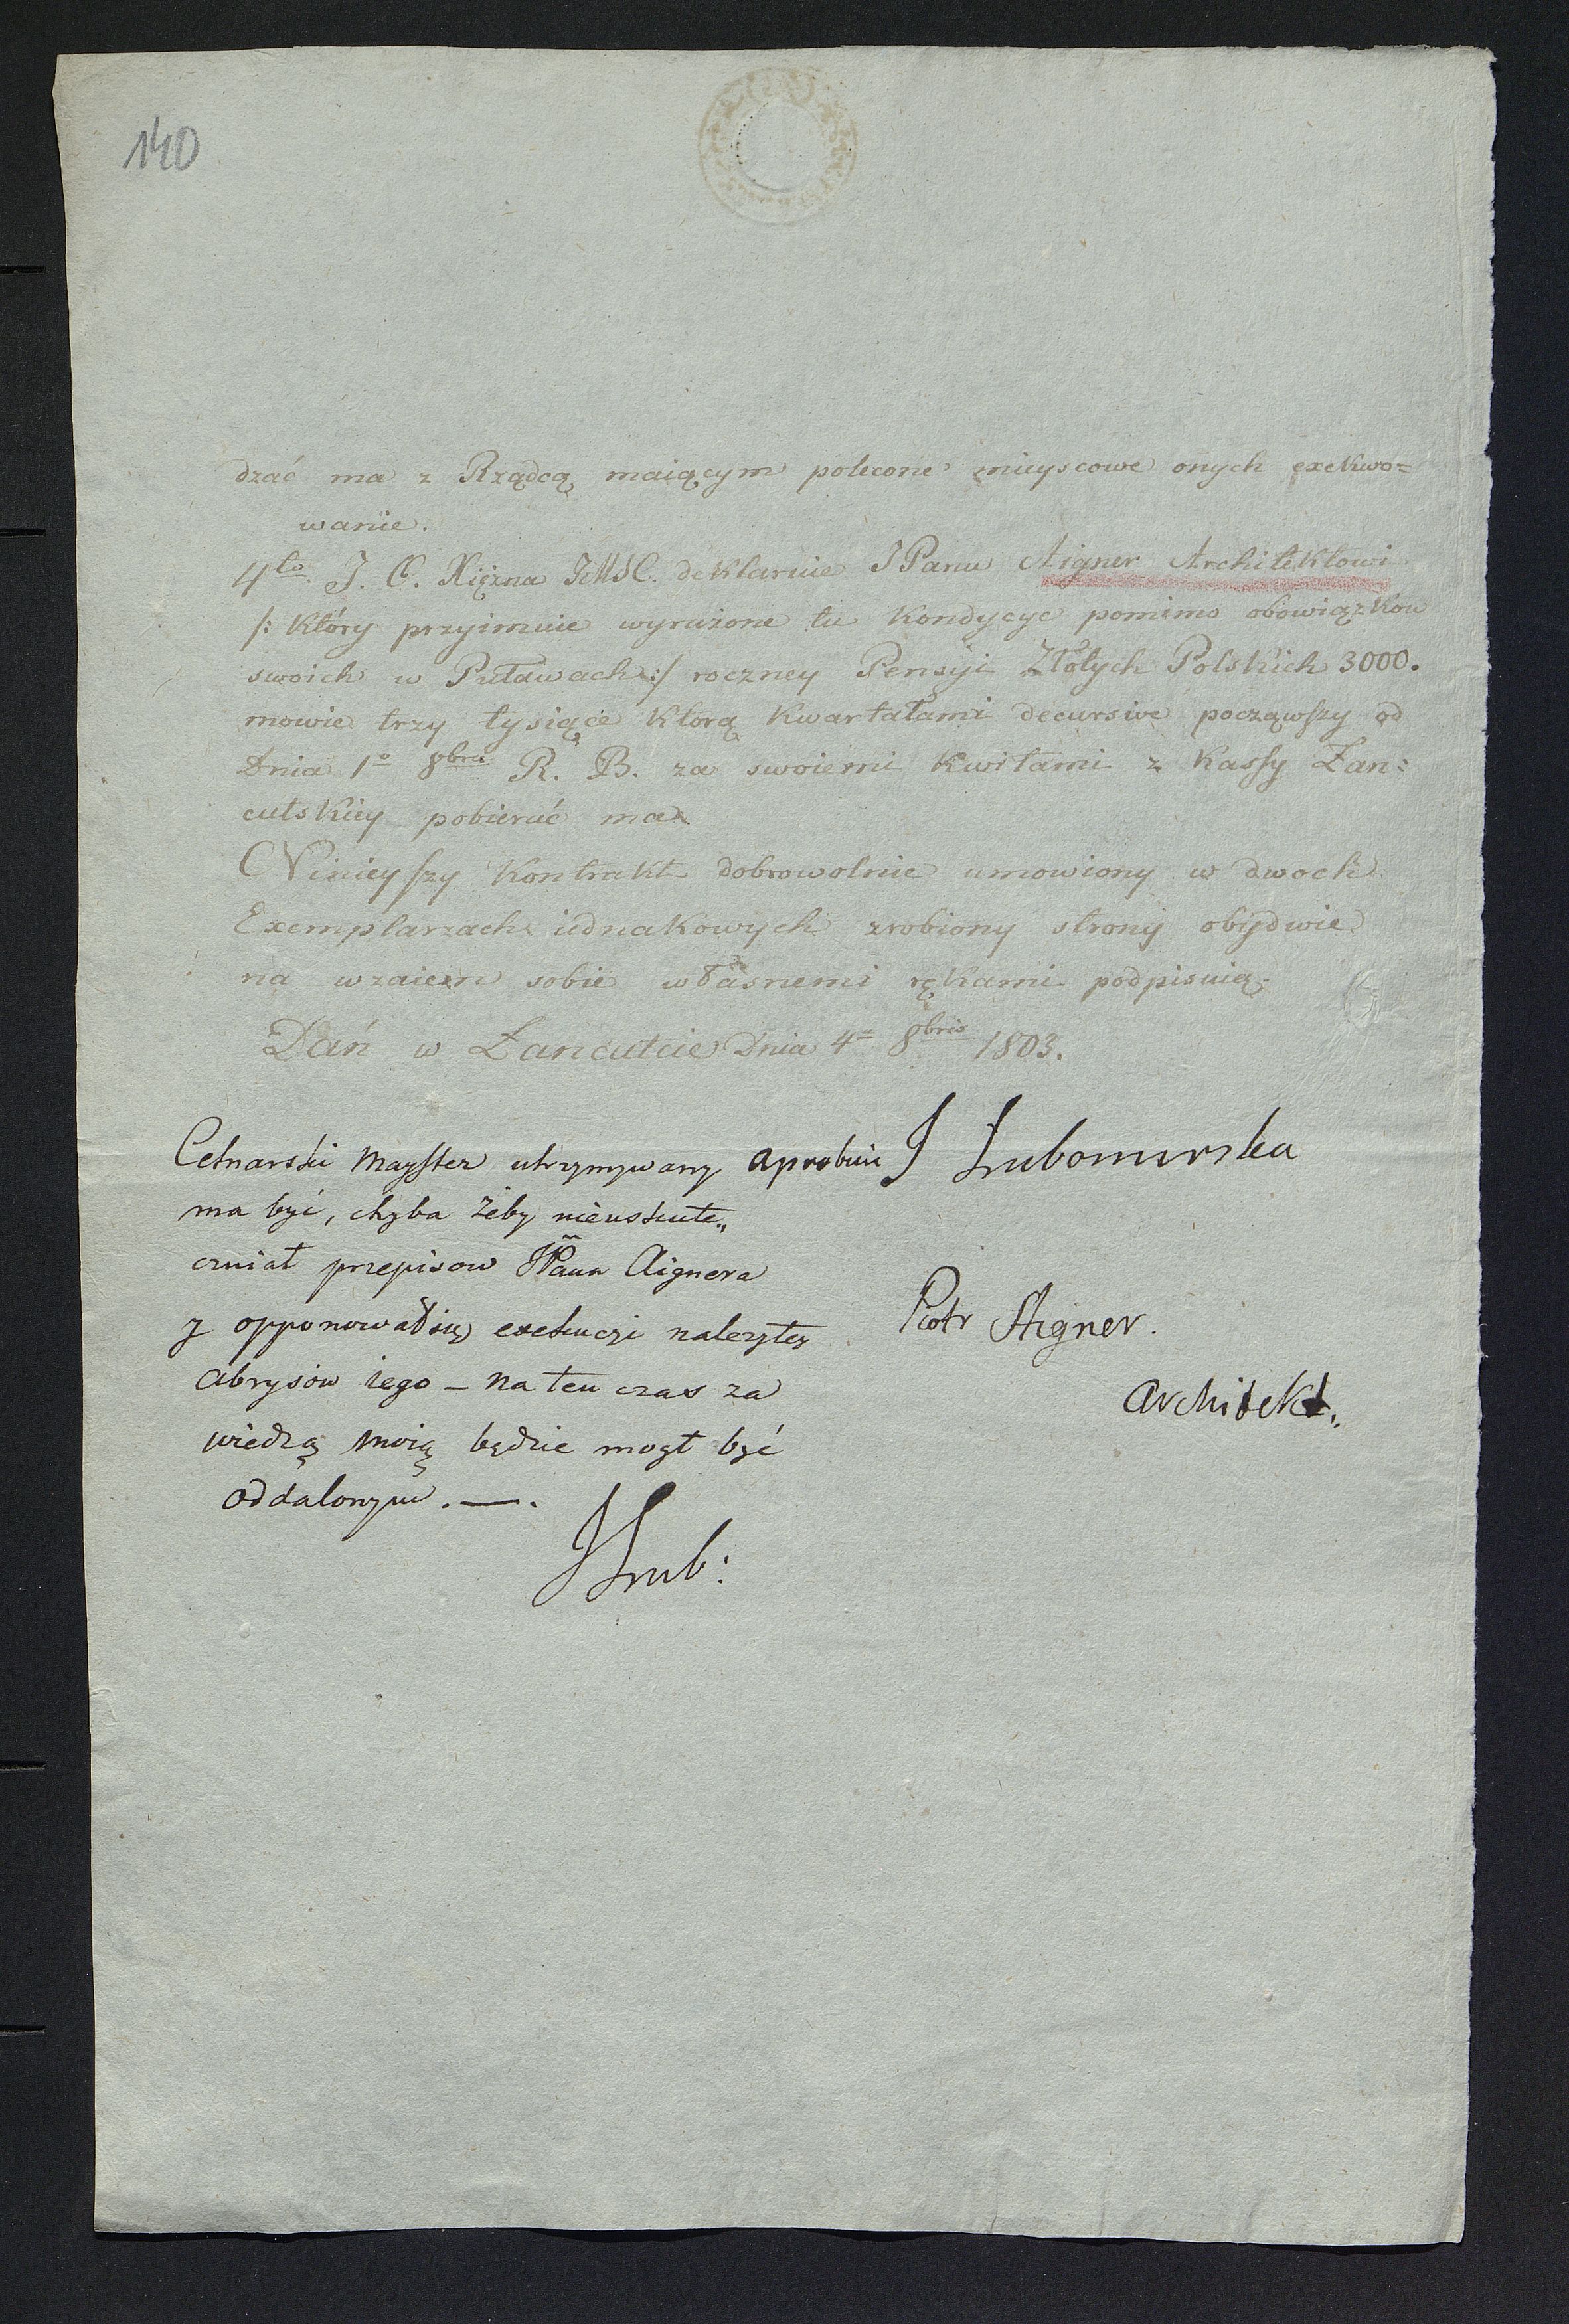 140
dzać ma z Rządcą maiącym polecone mieyscowe onych exekwo=
wanie.
4to J. O. Xiężna JeMSC. deklaruie JPanu Aigner Architektowi
/: który przyimuie wyrażone tu Kondycye pomimo obowiązkow
swoich w Puławach :/ roczney Pensyi Złotych Polskich 3000.
mowie trzy tysiące ktorą kwartałami decursive począwszy od
Dnia 1o 8bra R. B. za swoiemi kwitami z Kassy Łan:
cutskiey pobierać ma
Ninieyszy Kontrakt dobrowolnie umowiony w dwoch
Exemplarzach iednakowych zrobiony strony obydwie
na wzaiem sobie własnemi rękami podpisuią.
Dań w Łancutcie Dnia 4a 8bris 1803.
Cetnarski Mayster utrzymywany aprobuie J Lubomirska
ma być, chyba żeby nieuskute„
czniał przepisow JPana Aignera
y opponował się exekucyi należytey
abrysów iego – na ten czas za
wiedzą moią będzie mogł być
oddalonym. —.
JLub:
Piotr Aigner.
Architekt.